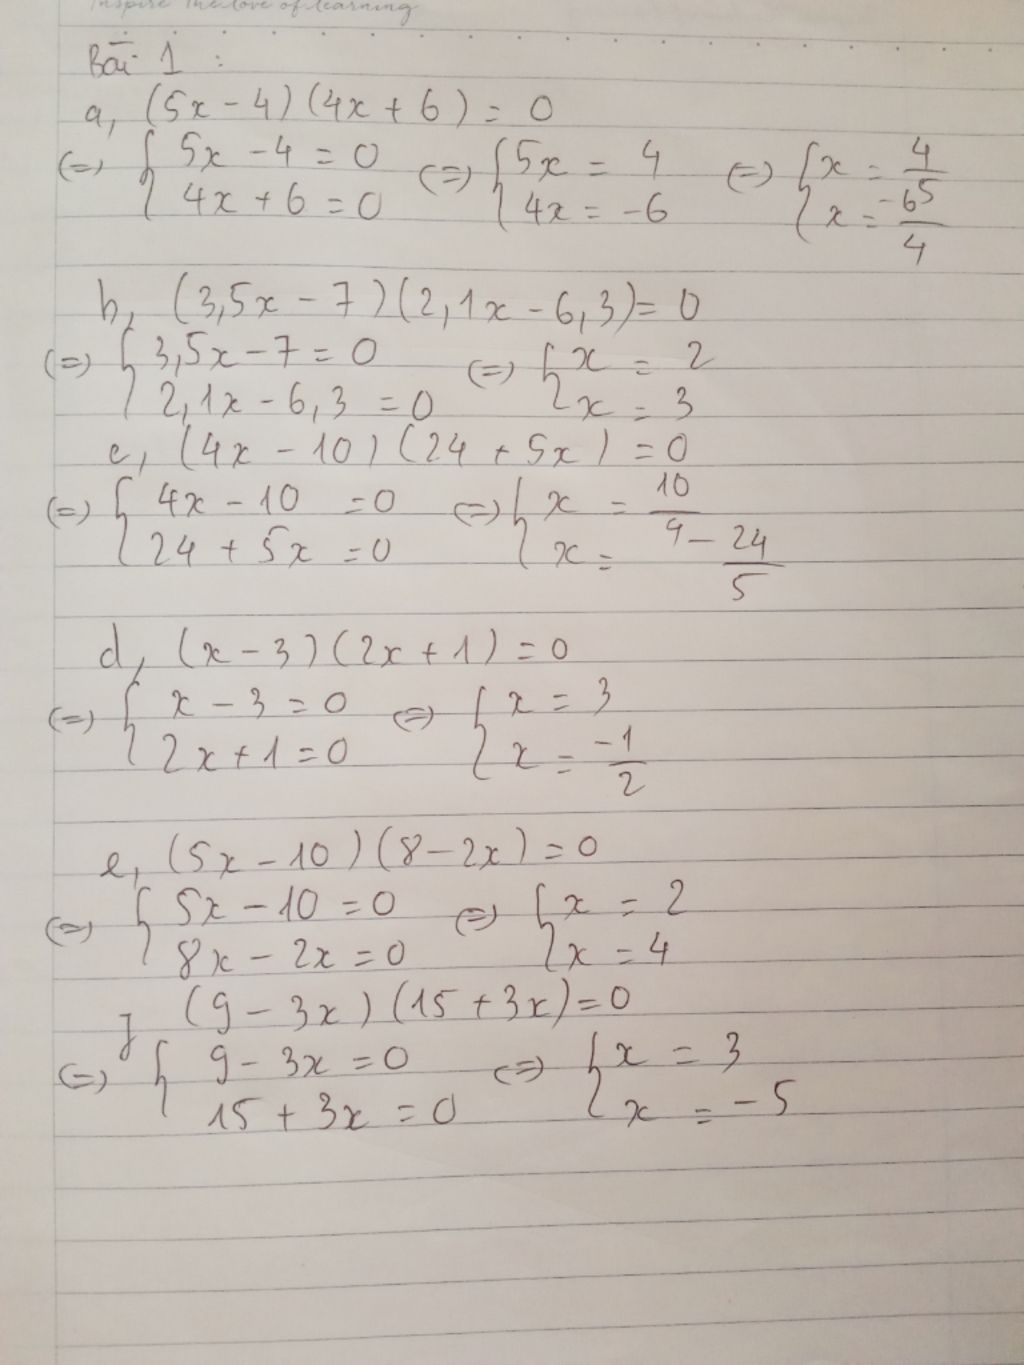 Inspire the love of learning
Bài 1 :
a, (5x - 4) (4x + 6) = 0
(=) { 5x - 4 = 0 (=) { 5x = 4 (=) { x = 4/5
4x + 6 = 0 4x = -6 x = -6/4
b, (3,5x - 7) (2,1x - 6,3) = 0
(=) { 3,5x - 7 = 0 (=) { x = 2
2,1x - 6,3 = 0 x = 3
c, (4x - 10) (24 + 5x) = 0
(=) { 4x - 10 = 0 (=) { x = 10/4
24 + 5x = 0 x = -24/5
d, (x - 3) (2x + 1) = 0
(=) { x - 3 = 0 (=) { x = 3
2x + 1 = 0 x = -1/2
e, (5x - 10) (8 - 2x) = 0
(=) { 5x - 10 = 0 (=) { x = 2
8x - 2x = 0 x = 4
f (9 - 3x) (15 + 3x) = 0
(=) { 9 - 3x = 0 (=) { x = 3
15 + 3x = 0 x = -5